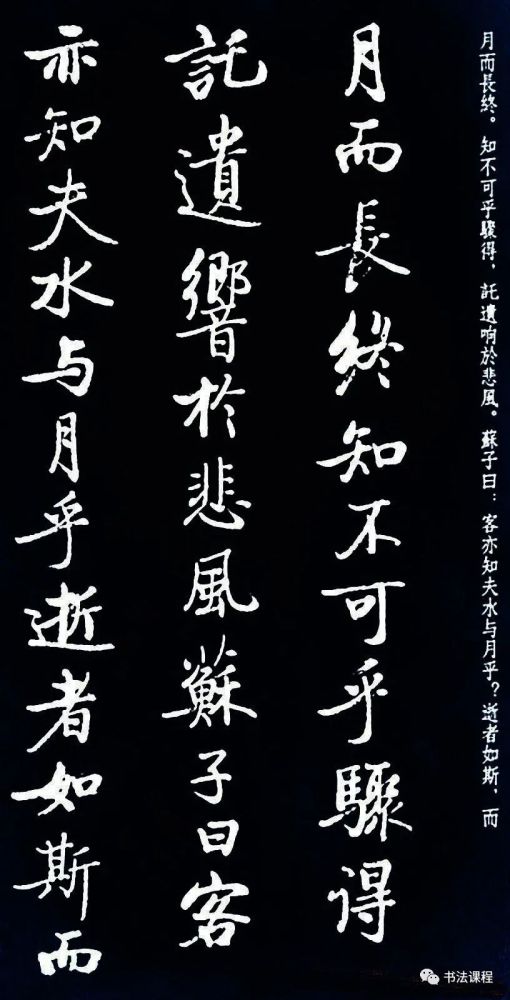 月而長終。知不可乎驟得，託遺响於悲風。蘇子曰：客亦知夫水与月乎？逝者如斯，而
月而長終知不可乎驟得
託遺響於悲風蘇子曰客
亦知夫水与月乎逝者如斯而
书法课程